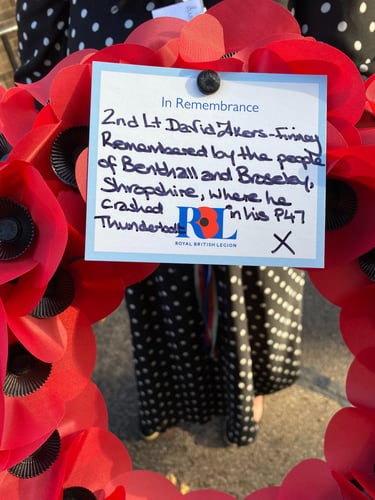 In Remembrance
2nd Lt David Akers-Finney
Remembered by the people
of Benthall and Broseley,
Shropshire, where he
crashed in his P47
Thunderbolt
RL
ROYAL BRITISH LEGION
X